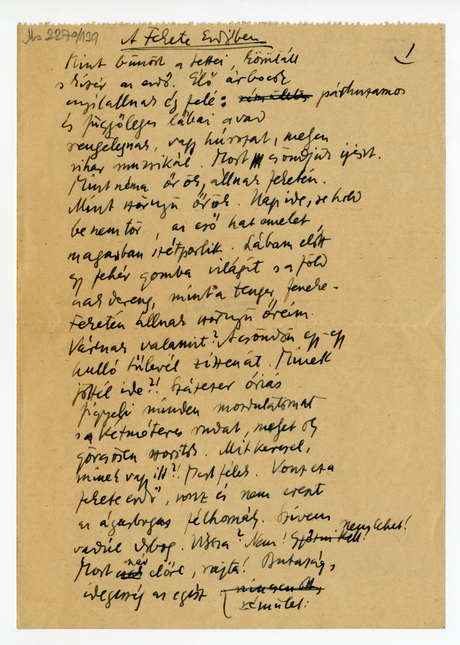 Ms 2270/129
A Fekete Erdőben
1
Mint bűnöst a tettei,
s kisér az erdő. Élő árbocok
nyilallnak ég felé: párhuzamos
és függőleges lábai avad
rengetegnek, vagy húrozat, melyen
vihar muzsikál. Most csöndjük ijeszt.
Mint néma őrök, állnak feketén.
Mint szörnyű őrök. Nap ide, se hold
be nem tör, az eső hat emelet
magasban szétporlik. Lábam előtt
egy fehér gomba világit s a föld
csak dereng, mint a tenger feneke.
Feketén állnak szörnyű őreim.
Várnak valamit? A csöndön egy-egy
hulló tűlevél zizzen át. Minek
jöttél ide?! Százezer óriás
figyeli minden mozdulatomat
s a kétméteres rudat, melyet oly
görcsösen szoritok. Mit keresel,
minek vagy itt?! Mert félek. Vonz ez a
fekete erdő, vonz és nem ereszt
az ágasbogas félhomály. Szívem
vadul dobog. Vissza? Nem! Nem lehet!
Most már előre, rajta! Butaság,
idegesség az egész
rémület: